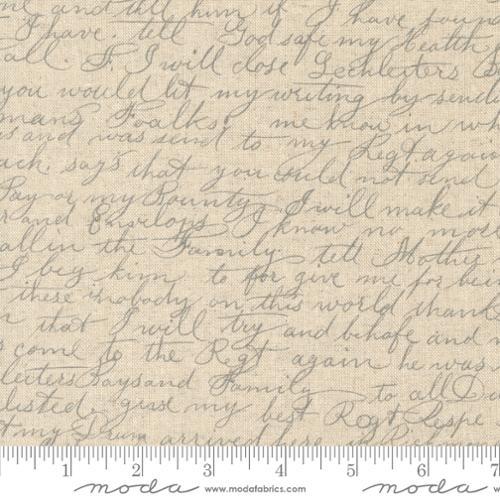 and tell him if I have
I have. tell God safe my Health
all. F. I will close Lechleiters
you would let my writing by send
mans Foalks. me know in
us and was send to my Regt again
ack. say's that you could not send
Pay or my Bounty I will make it
and Envelops I know no more
all in the Family. tell Mother
I beg him to for give me for
there is nobody on this world thank
that I will try and behafe and
come to the Regt again he was
leiters Says and Family to all
listed. give my best Regt Respe
my Drum arrived here in
1 2 3 4 5 6 7
moda www.modafabrics.com moda